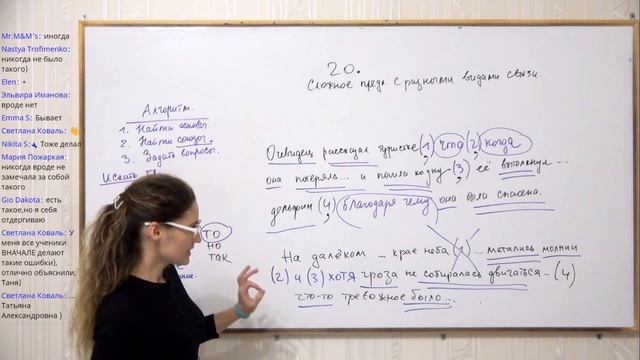 Mr.M&M's: иногда
Nastya Trofimenko:
никогда не было
такого)
Elen: +
Эльвира Иманова:
вроде нет
Emma S: Бывает
Светлана Коваль: 👋
Nikita S🔧 Тоже делал
Мария Пожаркая:
никогда вроде не
замечала за собой
такого
Gio Dakota: есть
такое,но я себя
отдергиваю
Светлана Коваль: У
меня все ученики
ВНАЧАЛЕ делают
такие ошибки),
отлично объяснили,
Таня)
Светлана Коваль: ...
Татьяна
Александровна )
20.
Сложное предл. с разными видами связи.
Алгоритм.
1. Найти основы.
2. Найти союзы.
3. Задать вопросы.
Искать
ТО
НО
ТАК
Очевидец рассказал туристке (1) что (2) когда
она потерялась... и пошла ко дну (3) её вытолкнул ...
дельфин (4) благодаря чему она была спасена.
На далёком ... крае неба (1) ... метались молнии
(2) и (3) хотя гроза не собиралась двигаться... (4)
что-то тревожное было...